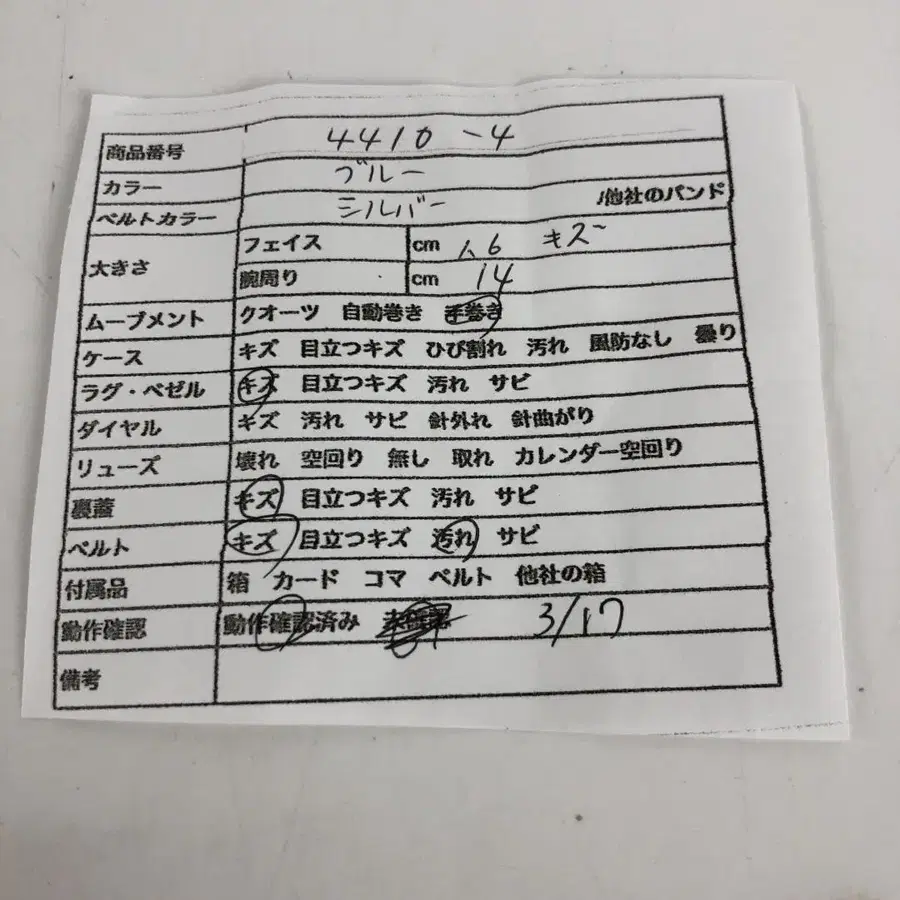 商品番号 4410-4
カラー ブルー
ベルトカラー シルバー /他社のバンド
大きさ フェイス cm 1.6 キズ
腕周り cm 14
ムーブメント クオーツ 自動巻き 手巻き
ケース キズ 目立つキズ ひび割れ 汚れ 風防なし 曇り
ラグ・ベゼル キズ 目立つキズ 汚れ サビ
ダイヤル キズ 汚れ サビ 針外れ 針曲がり
リューズ 壊れ 空回り 無し 取れ カレンダー空回り
裏蓋 キズ 目立つキズ 汚れ サビ
ベルト キズ 目立つキズ 汚れ サビ
付属品 箱 カード コマ ベルト 他社の箱
動作確認 動作確認済み 3/17
備考